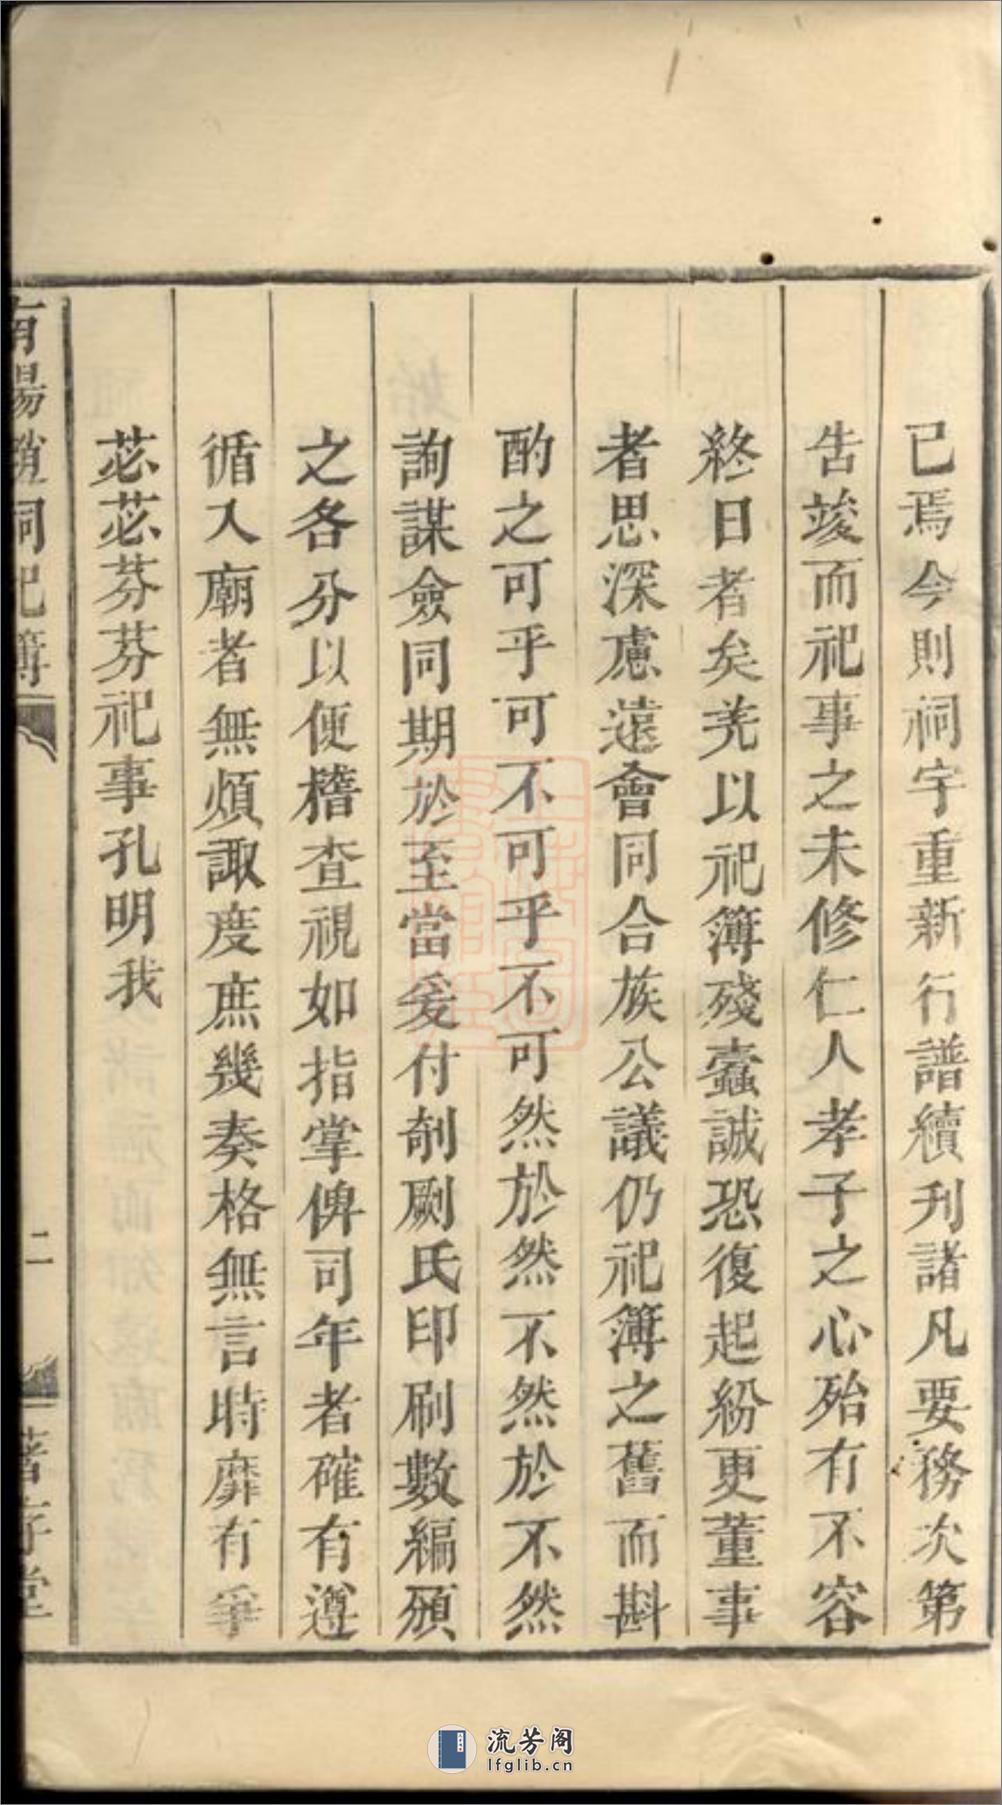 已焉今則祠宇重新行譜續刋諸凡要務次第
告竣而祀事之未修仁人孝子之心殆有不容
終日者矣羌以祀簿殘蠹誠恐復起紛更董事
者思深慮遠會同合族公議仍祀簿之舊而斟
酌之可乎可不可乎不可然於然不然於不然
詢謀僉同期於至當爰付剞劂氏印刷數編頒
之各分以便稽查視如指掌俾司年者確有遵
循入廟者無煩諏度庶幾奏格無言時靡有爭
苾苾芬芬祀事孔明我
南陽 祠祀簿
二
著存堂
流芳阁
lfglib.cn